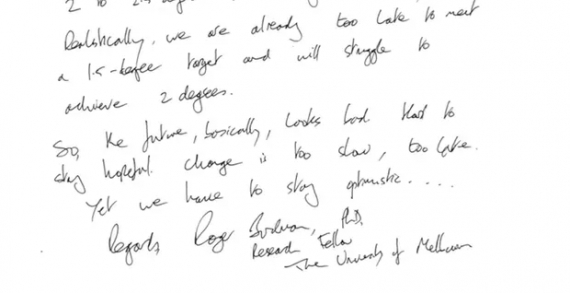 2 to 2.5 degrees
Realistically, we are already too late to meet
a 1.5-degree target and will struggle to
achieve 2 degrees.
So, the future, basically, looks bad. Hard to
stay hopeful. Change is too slow, too late.
Yet we have to stay optimistic....
Regards Roger Bodman, PhD,
Research Fellow
The University of Melbourne